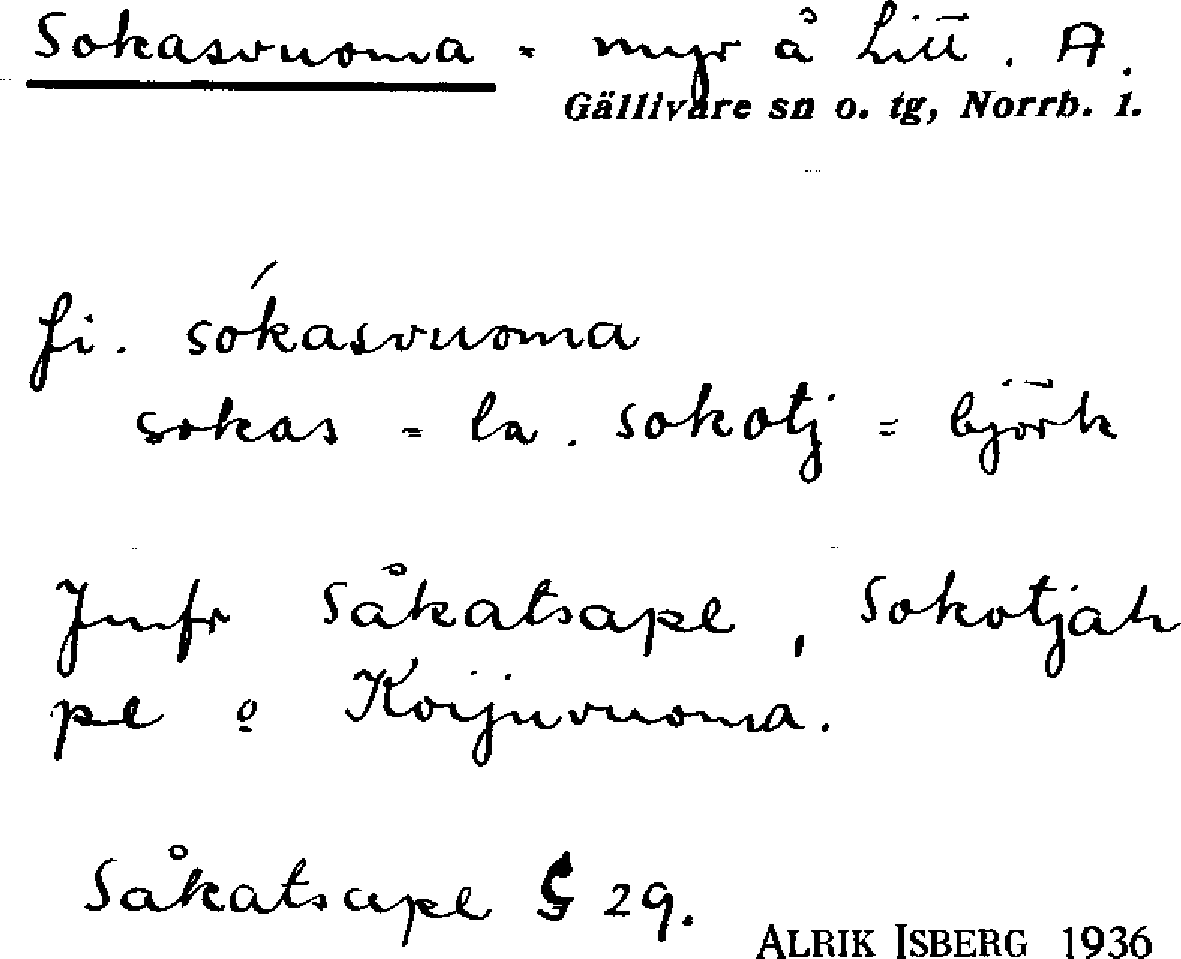 Sokasvuoma = myr å Litt. A.
Gällivare sn o. tg, Norrb. l.
fi. sókasvuoma
sokas = la. sokotj = björk
Jmfr Såkatsape , Sokotjah
pe o Koijuvuoma.
Såkatsape § 29.
ALRIK ISBERG 1936